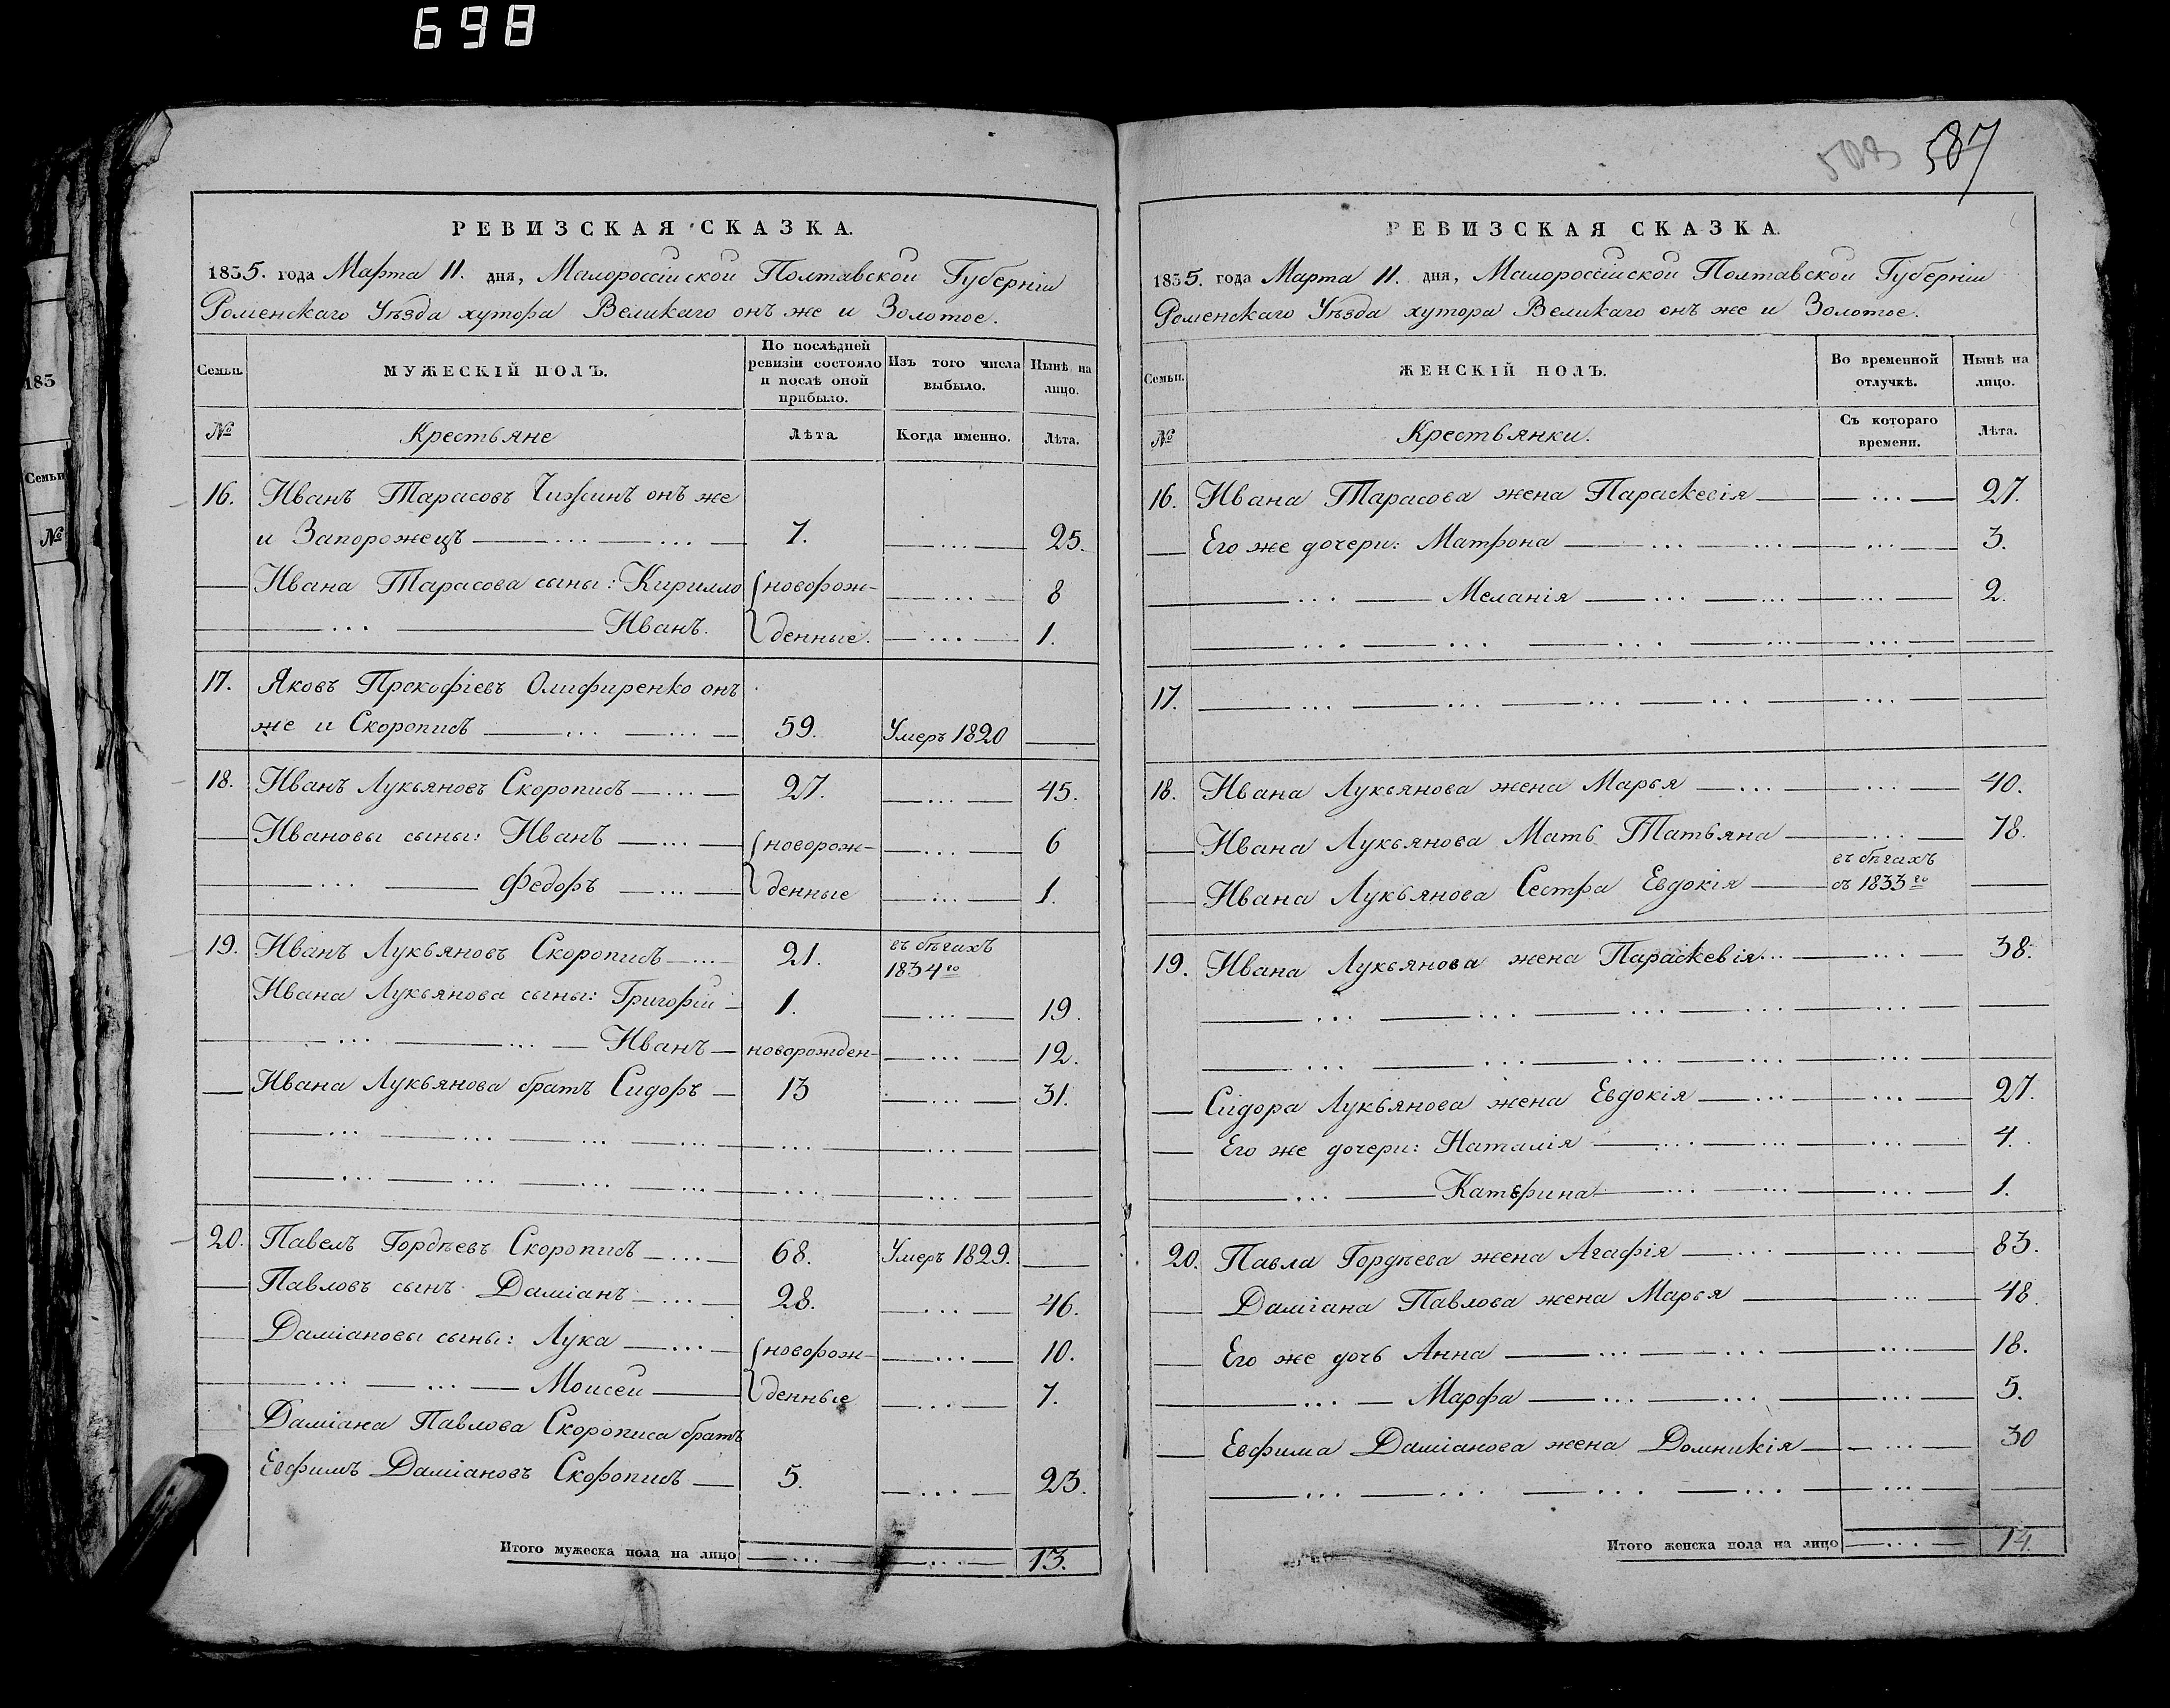 698
587
РЕВИЗСКАЯ СКАЗКА.
1835. года Марта 11. дня, Малороссійской Полтавской Губерніи
Роменскаго Уѣзда хутора Великаго онъ же и Золотое.
Семьи.
МУЖЕСКІЙ ПОЛЪ.
По послѣдней ревизіи состояло и послѣ оной прибыло.
Изъ того числа выбыло.
Нынѣ на лицо.
№ Крестьяне Лѣта Когда именно. Лѣта.
16. Иванъ Тарасовъ Чижинъ онъ же
и Запорожецъ 7. 25.
Ивана Тарасова сыны: Кирилло новорож- 8
Иванъ. денные. 1.
17. Яковъ Прокофіевъ Олифиренко онъ
же и Скорописъ 59. Умеръ 1820
18. Иванъ Лукьяновъ Скорописъ 27. 45.
Ивановы сыны: Иванъ новорож- 6
Федоръ денные 1.
19. Иванъ Лукьяновъ Скорописъ 21. въ бѣгахъ
1834го
Ивана Лукьянова сыны: Григорій 1. 19.
Иванъ новорожден- 12.
Ивана Лукьянова братъ Сидоръ 13 31.
20. Павелъ Гордѣевъ Скорописъ 68. Умеръ 1829.
Павловъ сынъ Даміанъ 28. 46.
Даміановы сыны: Лука новорож- 10.
Моисей денные 7.
Даміана Павлова Скорописа братъ
Евфимъ Даміановъ Скорописъ 5. 23.
Итого мужеска пола на лицо 13.
РЕВИЗСКАЯ СКАЗКА.
1835. года Марта 11. дня, Малороссійской Полтавской Губерніи
Роменскаго Уѣзда хутора Великаго онъ же и Золотое.
Семьи.
ЖЕНСКІЙ ПОЛЪ.
Во временной отлучкѣ.
Нынѣ на лицо.
№ Крестьянки. Съ котораго времени. Лѣта.
16. Ивана Тарасова жена Параскевія 27.
Его же дочери: Матрона 3.
Меланія 2.
17.
18. Ивана Лукьянова жена Марья 40.
Ивана Лукьянова Мать Татьяна 78.
въ бѣгахъ
Ивана Лукьянова Сестра Евдокія съ 1833го
19. Ивана Лукьянова жена Параскевія 38.
Сидора Лукьянова жена Евдокія 27.
Его же дочери: Наталія 4.
Катерина 1.
20. Павла Гордѣева жена Агафія 83.
Даміана Павлова жена Марья 48.
Его же дочь Анна 18.
Марфа 5.
Евфима Даміанова жена Домникія 30
Итого женска пола на лицо 14.
183
Семьи
№